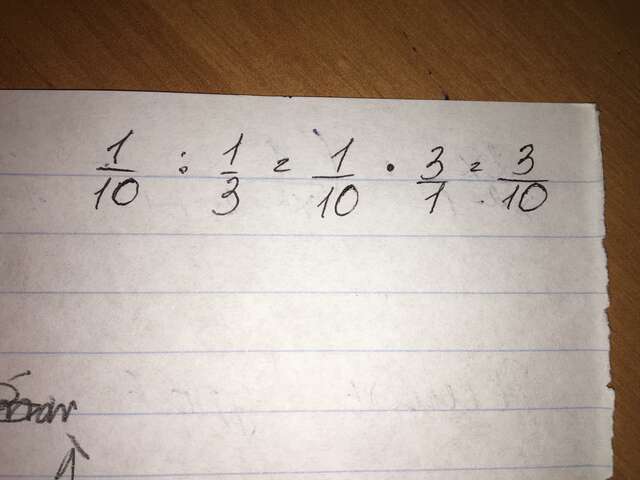 1/10 : 1/3 = 1/10 · 3/1 = 3/10